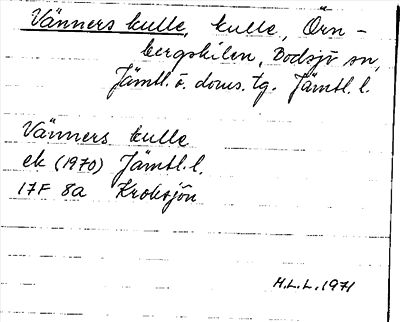 Vänners kulle, kulle, Örn-
bergskilen, Bodsjö sn,
Jämtl. ö. doms. tg. Jämtl. l.
Vänners kulle
ek (1970) Jämtl. l.
17F 8a Kroksjön
H.L.L. 1971